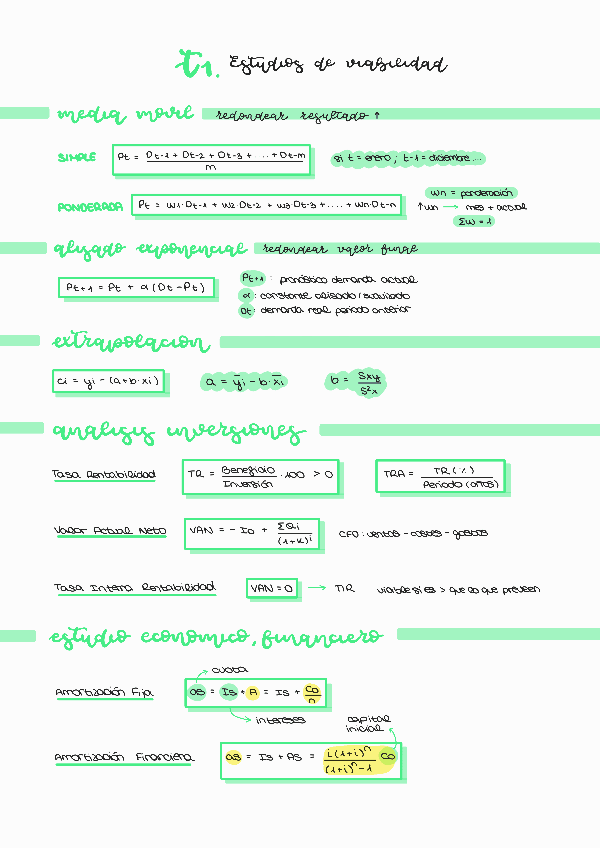 t1. Estudios de viabilidad
media movil redondear resultado ↑
SIMPLE Pt = (Dt-1 + Dt-2 + Dt-3 + ... + Dt-m) / m si t = enero ; t-1 = diciembre ...
PONDERADA Pt = w1·Dt-1 + w2·Dt-2 + w3·Dt-3 + .... + wn·Dt-n
wn = ponderación
↑wn → mes + actual
Σw = 1
alisado exponencial redondear valor final
Pt+1 = Pt + α (Dt - Pt)
Pt+1: pronóstico demanda actual
α: constante alisado / suavizado
Dt: demanda real periodo anterior
extrapolacion
ci = yi - (a+b·xi) a = ȳi - b·x̄i b = Sxy / S²x
analisis inversiones
Tasa Rentabilidad TR = Beneficio / Inversión ·100 > 0 TRA = TR (%) / Periodo (años)
Valor Actual Neto VAN = - I0 + ΣQi / (1+k)^i CF0: ventas - costes - gastos
Tasa Interna Rentabilidad VAN = 0 → TIR viable si es > que lo que preveen
estudio economico, financiero
cuota
Amortización Fija as = Is + A = Is + Co / n
intereses
capital
inicial
Amortización Financiera as = Is + As = i(1+i)^n / (1+i)^n - 1 Co